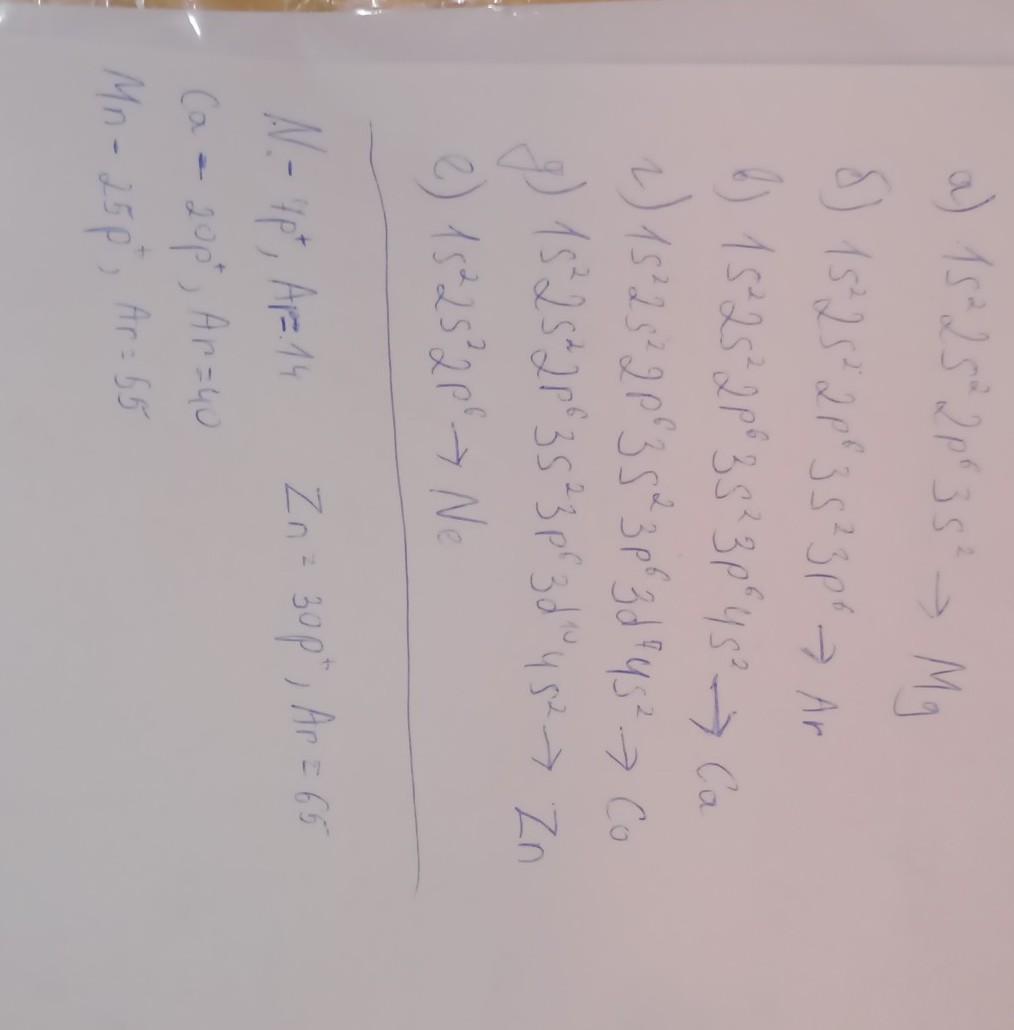 а) 1s² 2s² 2p⁶ 3s² → Mg
б) 1s² 2s² 2p⁶ 3s² 3p⁶ → Ar
в) 1s² 2s² 2p⁶ 3s² 3p⁶ 4s² → Ca
г) 1s² 2s² 2p⁶ 3s² 3p⁶ 3d⁷ 4s² → Co
д) 1s² 2s² 2p⁶ 3s² 3p⁶ 3d¹⁰ 4s² → Zn
е) 1s² 2s² 2p⁶ → Ne
N - 7p⁺, Ar = 14 Zn = 30p⁺, Ar = 65
Ca - 20p⁺, Ar = 40
Mn - 25p⁺, Ar = 55